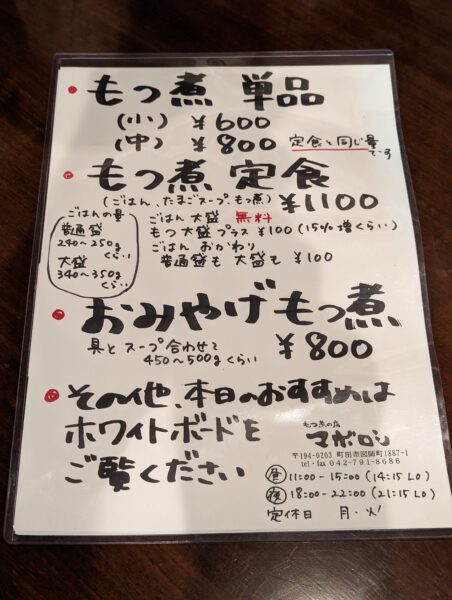 もつ煮 単品
(小) ¥600
(中) ¥800 定食と同じ量です
もつ煮 定食
(ごはん、たまごスープ、もつ煮) ¥1100
ごはんの量
普通盛
240～250gくらい
大盛
340～350gくらい
ごはん 大盛 無料
もつ大盛 プラス ¥100 (15%増くらい)
ごはん おかわり
普通盛も 大盛も ¥100
おみやげ もつ煮
具とスープ合わせて
450～500gくらい
¥800
その他、本日のおすすめは
ホワイトボードを
ご覧ください
もつ煮の店
マボロシ
〒194-0203 町田市図師町1887-1
tel・fax 042-791-8686
昼 11:00-15:00 (14:15 LO)
夜 18:00-22:00 (21:15 LO)
定休日 月・火!